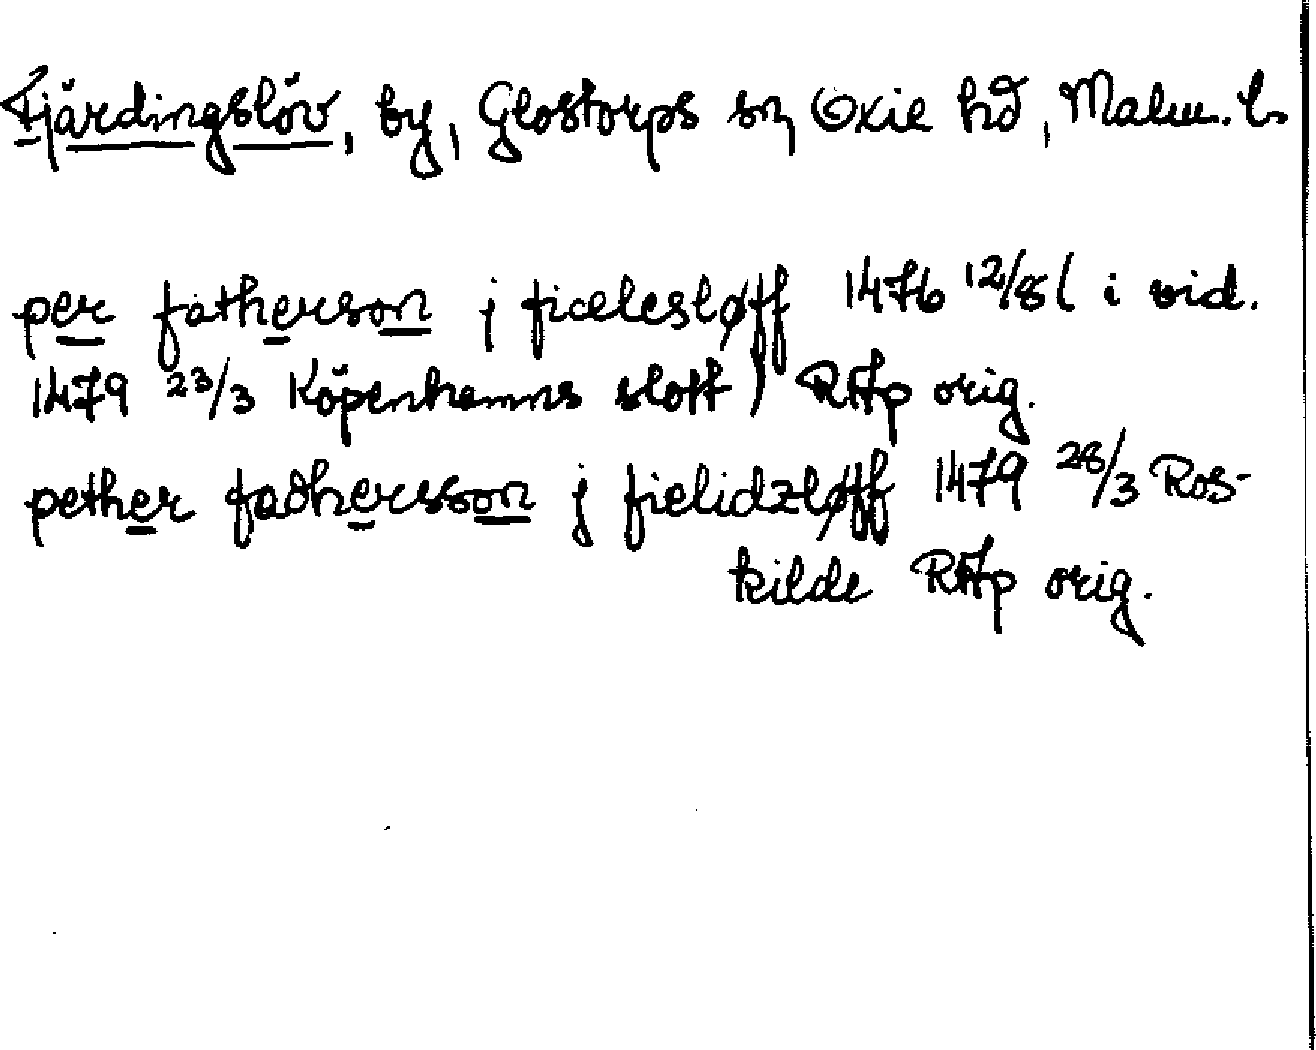 Fjärdingslöv, by, Glostorps sn, Oxie hd, Malm. l.
per fatherson j ficelesløff 1476 12/8 ( i vid.
1479 23/3 Köpenhamns slott ) RAp orig.
pether fadhersson j fielidzløff 1479 28/3 Ros-
kilde RAp orig.